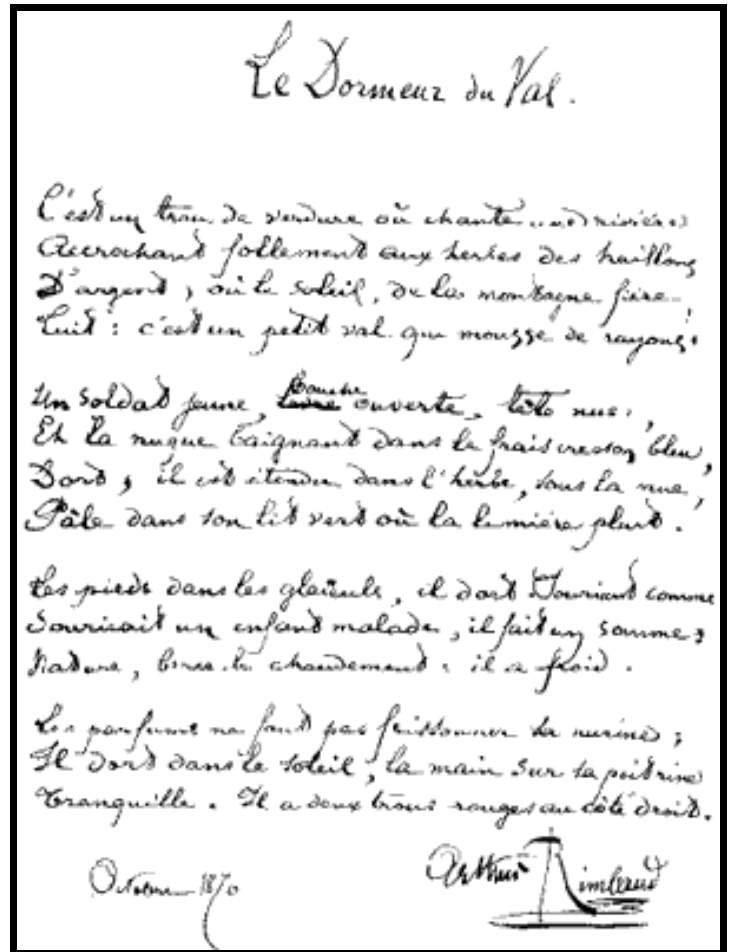 Le Dormeur du Val.
C'est un trou de verdure où chante une rivière
Accrochant follement aux herbes des haillons
D'argent ; où le soleil, de la montagne fière,
Luit : c'est un petit val qui mousse de rayons.
Un soldat jeune, bouche ouverte, tête nue,
Et la nuque baignant dans le frais cresson bleu,
Dort ; il est étendu dans l'herbe, sous la nue,
Pâle dans son lit vert où la lumière pleut.
Les pieds dans les glaïeuls, il dort. Souriant comme
Sourirait un enfant malade, il fait un somme :
Nature, berce-le chaudement : il a froid.
Les parfums ne font pas frissonner sa narine ;
Il dort dans le soleil, la main sur sa poitrine
Tranquille. Il a deux trous rouges au côté droit.
Octobre 1870
Arthur Rimbaud